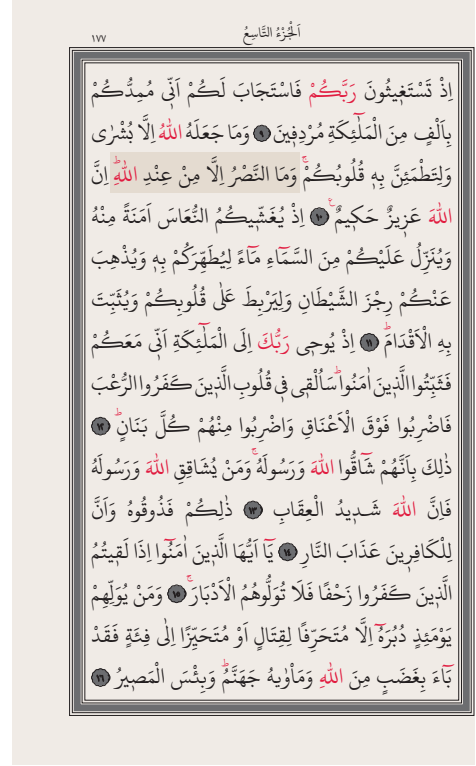 ١٧٧ اَلْجُزْءُ التَّاسِعُ
اِذْ تَسْتَغٖيثُونَ رَبَّكُمْ فَاسْتَجَابَ لَكُمْ اَنّٖي مُمِدُّكُمْ
بِاَلْفٍ مِنَ الْمَلٰٓئِكَةِ مُرْدِفٖينَ ﴿٩﴾ وَمَا جَعَلَهُ اللّٰهُ اِلَّا بُشْرٰى
وَلِتَطْمَئِنَّ بِهٖ قُلُوبُكُمْۚ وَمَا النَّصْرُ اِلَّا مِنْ عِنْدِ اللّٰهِؕ اِنَّ
اللّٰهَ عَزٖيزٌ حَكٖيمٌࣖ ﴿١٠﴾ اِذْ يُغَشّٖيكُمُ النُّعَاسَ اَمَنَةً مِنْهُ
وَيُنَزِّلُ عَلَيْكُمْ مِنَ السَّمَٓاءِ مَٓاءً لِيُطَهِّرَكُمْ بِهٖ وَيُذْهِبَ
عَنْكُمْ رِجْزَ الشَّيْطَانِ وَلِيَرْبِطَ عَلٰى قُلُوبِكُمْ وَيُثَبِّتَ
بِهِ الْاَقْدَامَؕ ﴿١١﴾ اِذْ يُوحٖي رَبُّكَ اِلَى الْمَلٰٓئِكَةِ اَنّٖي مَعَكُمْ
فَثَبِّتُوا الَّذٖينَ اٰمَنُواؕ سَاُلْقٖي فٖي قُلُوبِ الَّذٖينَ كَفَرُوا الرُّعْبَ
فَاضْرِبُوا فَوْقَ الْاَعْنَاقِ وَاضْرِبُوا مِنْهُمْ كُلَّ بَنَانٍؕ ﴿١٢﴾
ذٰلِكَ بِاَنَّهُمْ شَٓاقُّوا اللّٰهَ وَرَسُولَهُۚ وَمَنْ يُشَاقِقِ اللّٰهَ وَرَسُولَهُ
فَاِنَّ اللّٰهَ شَدٖيدُ الْعِقَابِ ﴿١٣﴾ ذٰلِكُمْ فَذُوقُوهُ وَاَنَّ
لِلْكَافِرٖينَ عَذَابَ النَّارِ ﴿١٤﴾ يَٓا اَيُّهَا الَّذٖينَ اٰمَنُٓوا اِذَا لَقٖيتُمُ
الَّذٖينَ كَفَرُوا زَحْفًا فَلَا تُوَلُّوهُمُ الْاَدْبَارَۚ ﴿١٥﴾ وَمَنْ يُوَلِّهِمْ
يَوْمَئِذٍ دُبُرَهُٓ اِلَّا مُتَحَرِّفًا لِقِتَالٍ اَوْ مُتَحَيِّزًا اِلٰى فِئَةٍ فَقَدْ
بَٓاءَ بِغَضَبٍ مِنَ اللّٰهِ وَمَأْوٰيهُ جَهَنَّمُؕ وَبِئْسَ الْمَصٖيرُ ﴿١٦﴾